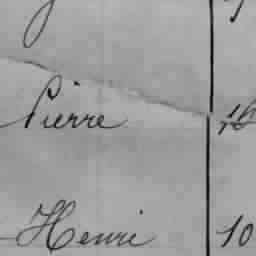 Pierre 16
Henri 10